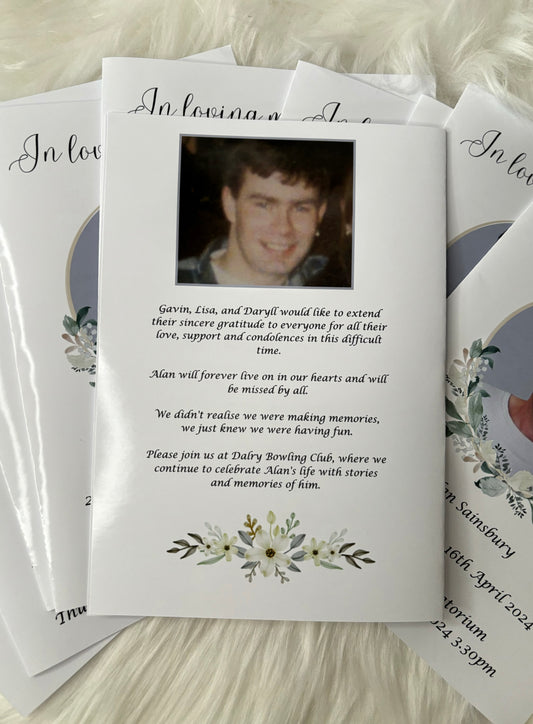 In lov
In loving
In
In lovin
Gavin, Lisa, and Daryll would like to extend
their sincere gratitude to everyone for all their
love, support and condolences in this difficult
time.
Alan will forever live on in our hearts and will
be missed by all.
We didn't realise we were making memories,
we just knew we were having fun.
Please join us at Dalry Bowling Club, where we
continue to celebrate Alan's life with stories
and memories of him.
Sainsbury
16th April 2024
3.30pm